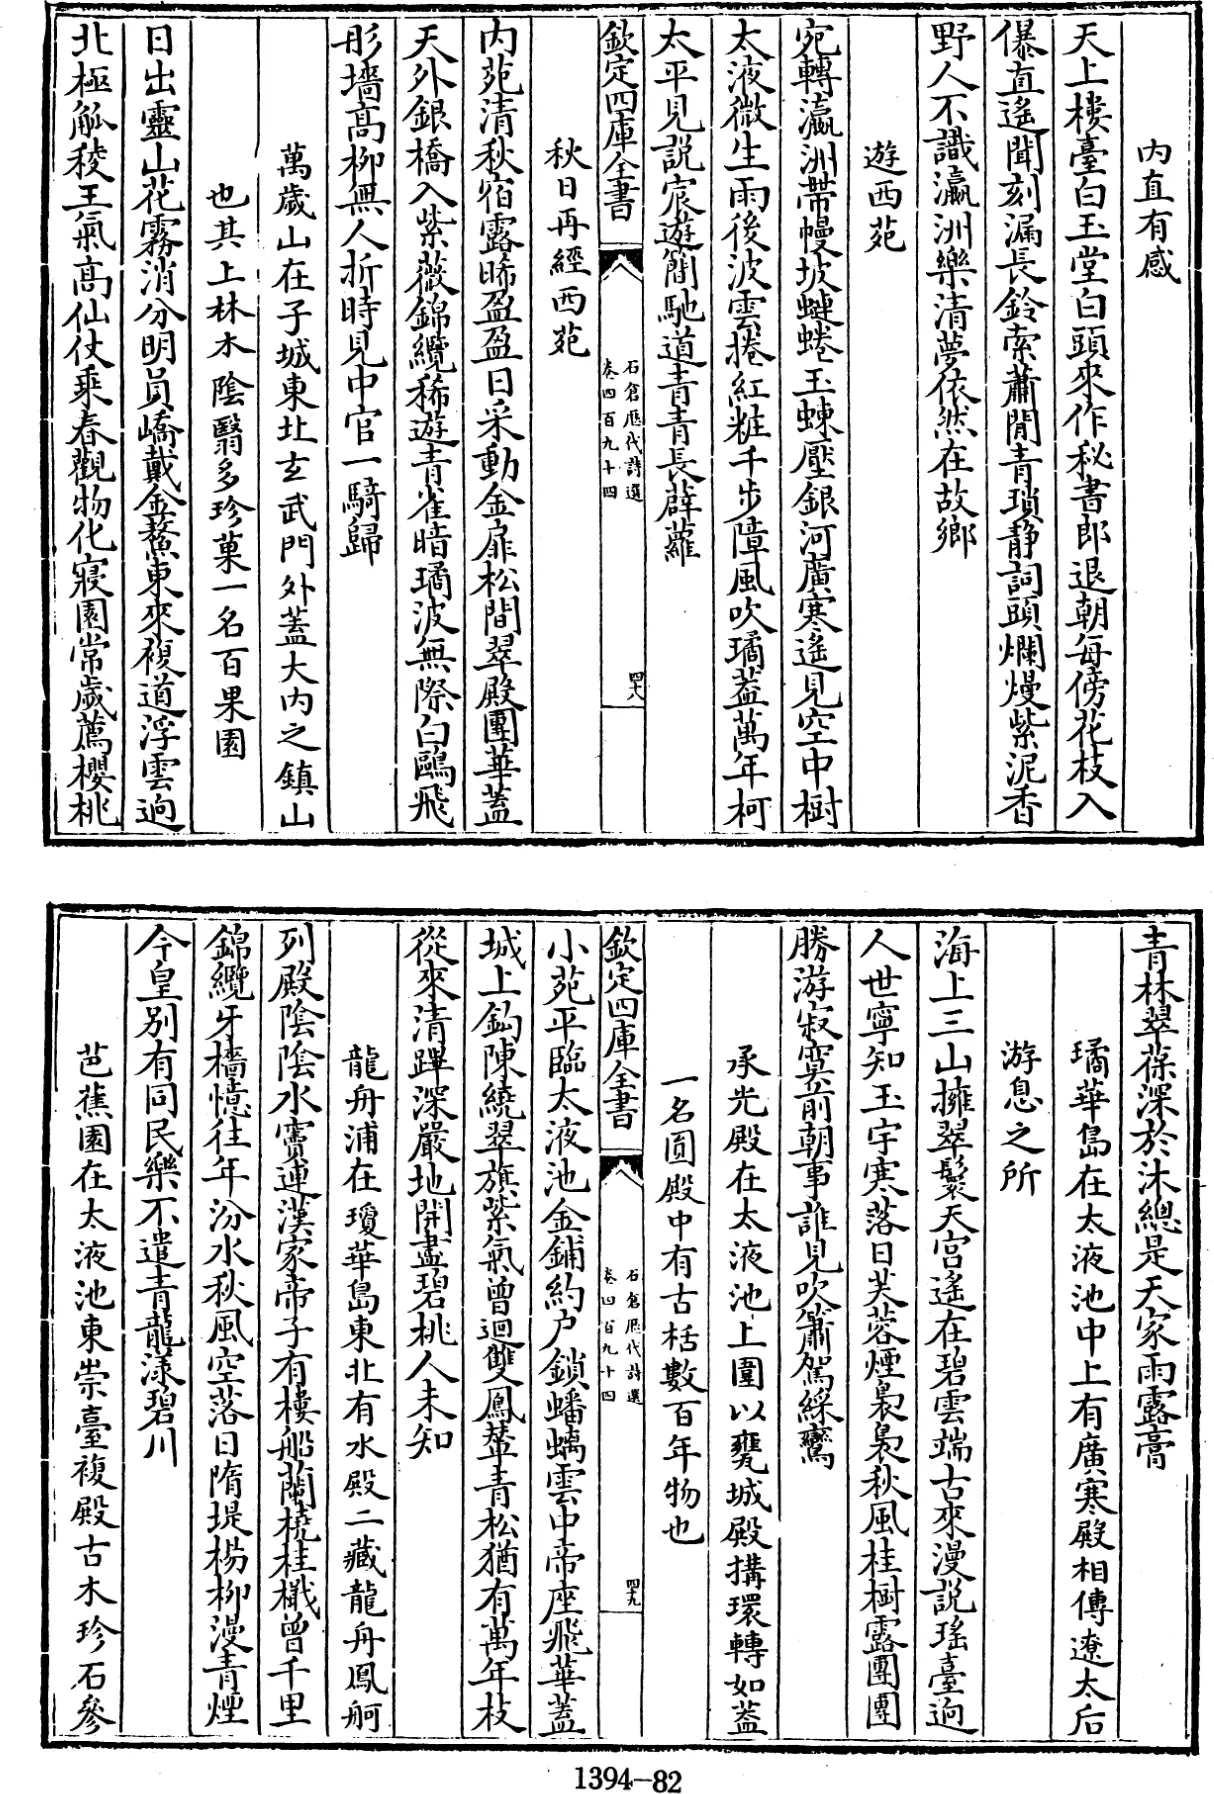 内直有感
天上樓臺白玉堂白頭來作秘書郎退朝每傍花枝入
儤直遙聞刻漏長鈴索蕭閒青瑣静詞頭爛熳紫泥香
野人不識瀛洲樂清夢依然在故鄉
遊西苑
宛轉瀛洲帶幔坡蜿蜷玉蝀壓銀河廣寒遙見空中樹
太液微生雨後波雲捲紅粧千步障風吹璚葢萬年柯
太平見説宸遊簡馳道青青長薜蘿
欽定四庫全書
石倉歷代詩選
卷四百九十四
四十八
秋日再經西苑
内苑清秋宿露晞盈盈日采動金扉松間翠殿團華葢
天外銀橋入紫薇錦纜稀遊青雀暗璚波無際白鷗飛
彤墻高柳無人折時見中官一騎歸
萬歲山在子城東北玄武門外葢大内之鎮山
也其上林木陰翳多珍菓一名百果園
日出靈山花霧消分明員嶠戴金鰲東來複道浮雲迥
北極觚稜王氣高仙仗乘春觀物化寢園常歲薦櫻桃
青林翠葆深於沐總是天家雨露膏
璚華島在太液池中上有廣寒殿相傳遼太后
游息之所
海上三山擁翠鬟天宮遙在碧雲端古來漫説瑤臺迥
人世寧知玉宇寒落日芙蓉煙裊裊秋風桂樹露團團
勝游寂寞前朝事誰見吹簫駕綵鸞
承光殿在太液池上圍以甕城殿搆環轉如葢
一名圓殿中有古栝數百年物也
欽定四庫全書
石倉歷代詩選
卷四百九十四
四十九
小苑平臨太液池金鋪約户鎖蟠螭雲中帝座飛華葢
城上鈎陳繞翠旗紫氣曾迴雙鳳輦青松猶有萬年枝
從來清蹕深嚴地開盡碧桃人未知
龍舟浦在瓊華島東北有水殿二藏龍舟鳳舸
列殿陰陰水竇連漢家帝子有樓船蘭橈桂檝曾千里
錦纜牙檣憶往年汾水秋風空落日隋堤楊柳漫青煙
今皇别有同民樂不遣青龍漾碧川
芭蕉園在太液池東崇臺複殿古木珍石參
1394-82